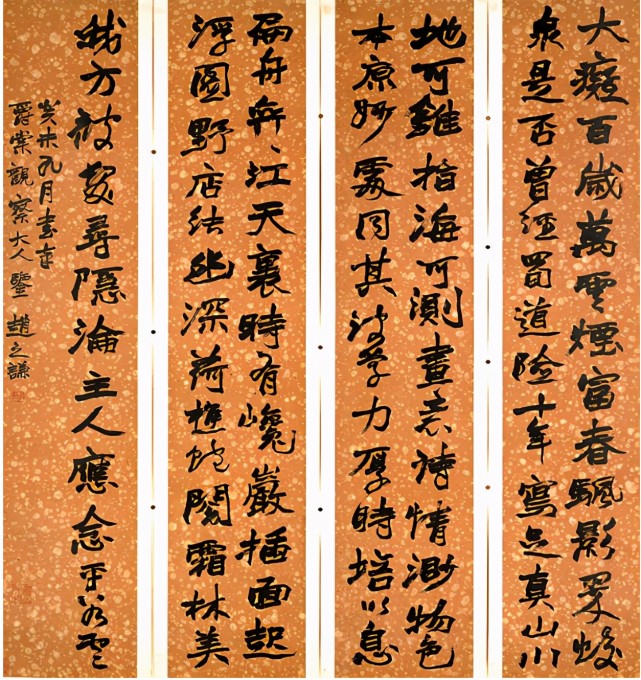 大癡百歲萬雲煙富春飄影翠蛟
泉是否曾經蜀道險十年寫足真山川
地可錐指海可測畫意詩情渺物色
本原妙處同其學力厚時培以息
扁舟奔〻江天裏時有巉巖插面起
浮圖野店結幽深荷樵蛇閣霜林美
我方被髮尋隱淪主人應念平
癸未九月書奉
爵棠觀察大人鑒 趙之謙